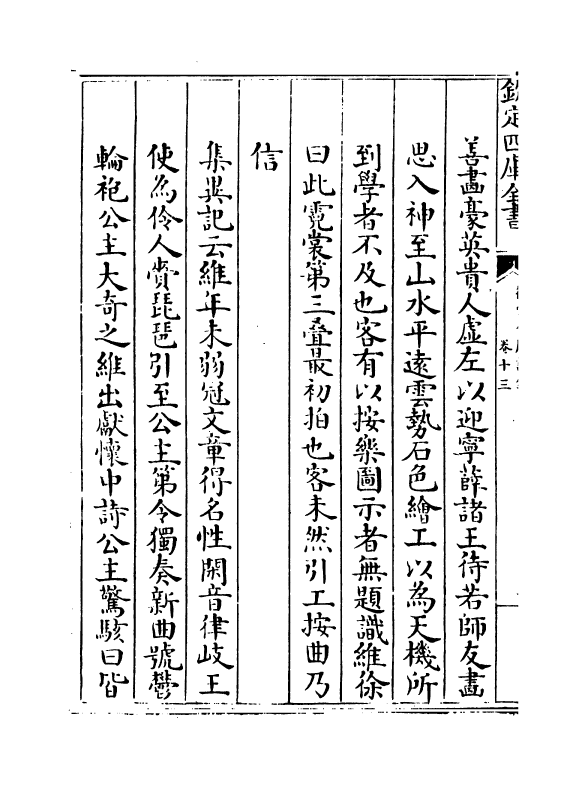 欽定四庫全書
卷十三
善畫豪英貴人虛左以迎寧薛諸王待若師友畫
思入神至山水平遠雲勢石色繪工以為天機所
到學者不及也客有以按樂圖示者無題識維徐
曰此霓裳第三疊最初拍也客未然引工按曲乃
信
集異記云維年未弱冠文章得名性閑音律岐王
使為伶人賫琵琶引至公主第令獨奏新曲號鬱
輪袍公主大奇之維出獻懷中詩公主驚駭曰皆